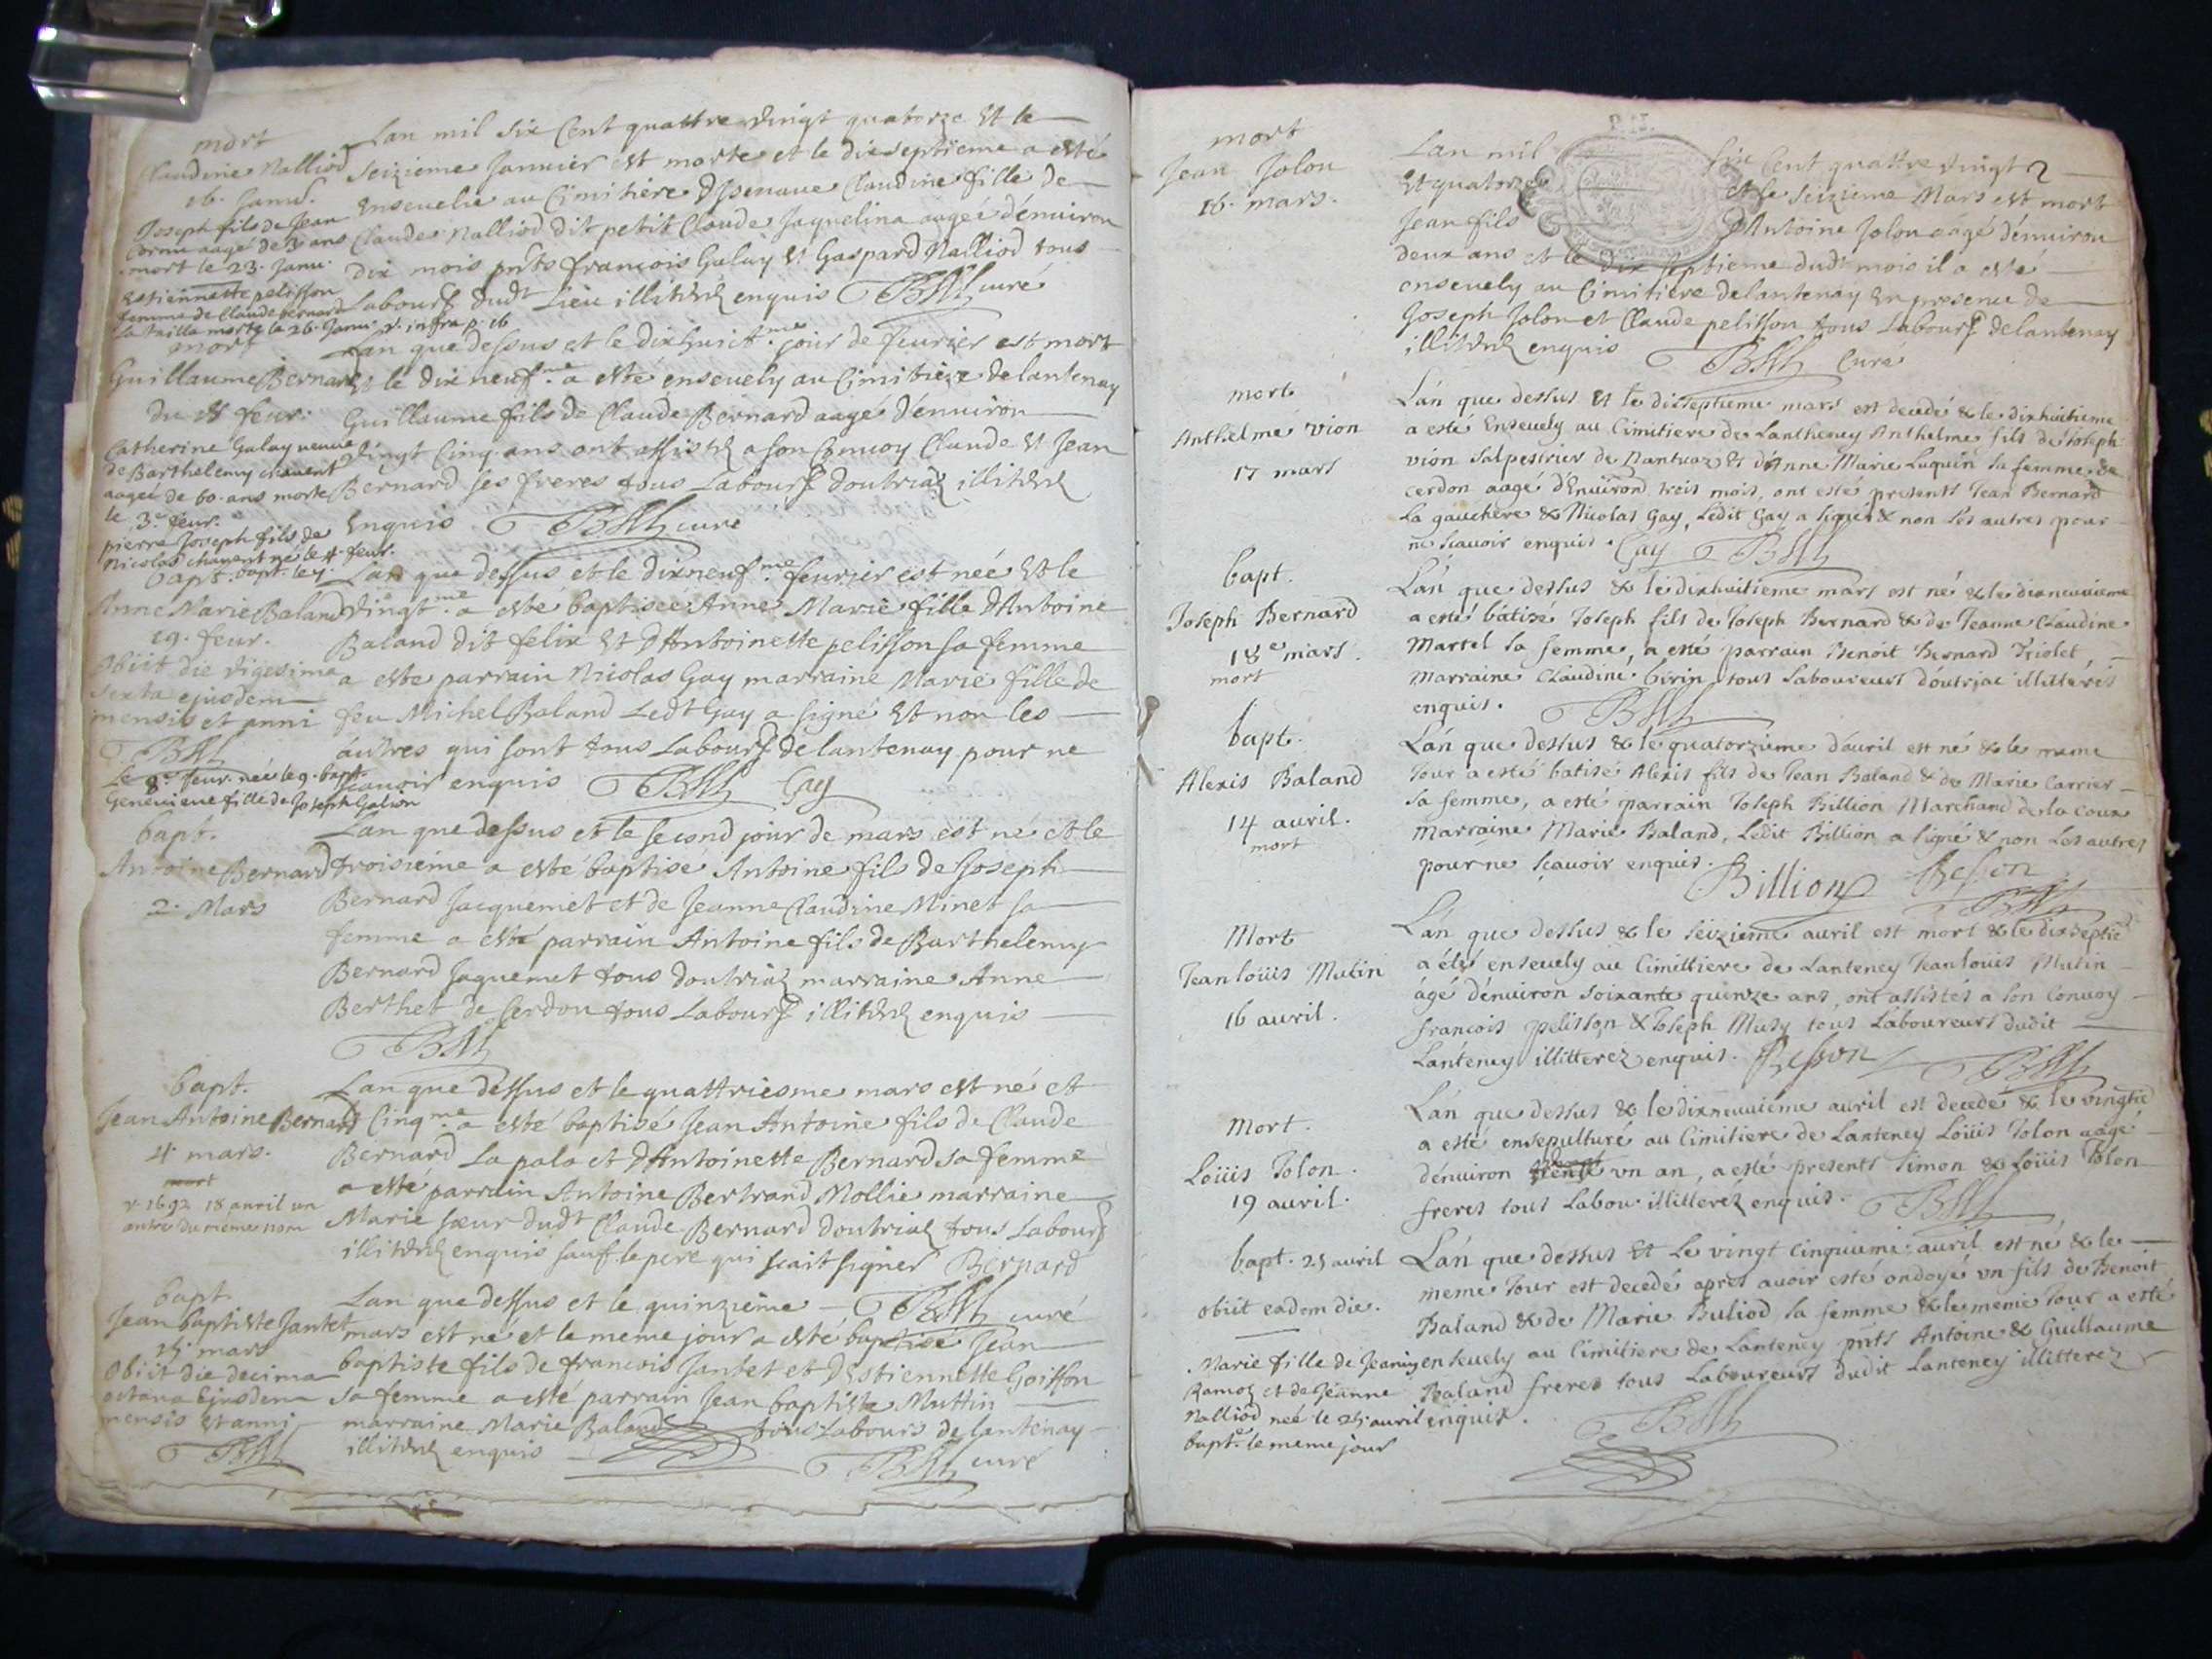 mort
Claudine Nalliod
16. Janv.
Joseph fils de Jean
Cornu aagé de 3 ans
mort le 23. Janv.
Estiennette pelisson
femme de Claude Bernard
la tailla morte le 26. Janv. v. infra p. 16
Lan mil six Cent quattre vingt quatorze Et le
seizieme Januier est morte et le dixseptieme a esté
Enseuelie au Cimitiere Disenaue Claudine fille de
Claude Nalliod dit petit Claude Jaquelina aageé d'enuiron
dix mois pnts francois Galay Et Gaspard Nalliod tous
Labours dudt Lieu illiterez enquis curé
mort
Guillaume Bernard
du 18 feur.
Catherine Galay veuue
de Barthelemy chauent
aageé de 60. ans morte
le 3e feur.
pierre Joseph fils de
Nicolas chauent né le 4. feur.
bapt. le 4.
Lan que dessus et le dixhuict.me jour de feurier est mort
Et le dix neuf.me a esté enseuely au Cimitiere de lantenay
Guillaume fils de Claude Bernard aagé d'enuiron
vingt Cinq ans ont assistez a son Conuoy Claude Et Jean
Bernard ses freres tous Labours doutriaz illiterez
Enquis curé
bapt.
Anne Marie Baland
19. feur.
Obiit die vigesima
sexta ejusdem
mensis et anni
Le 8e. feur. née le 9. bapt.
Geneuieue fille de Joseph Galion
Lan que dessus et le dixneuf.me feurier est née Et le
vingt.me a esté baptisee Anne Marie fille d'Antoine
Baland dit felix Et d'Antoinette pelisson sa femme
a esté parrain Nicolas Gay marraine Marie fille de
feu Michel Baland Ledt Gay a signé Et non les
autres qui sont tous Labours de lantenay pour ne
scauoir enquis Gay
bapt.
Antoine Bernard
2. Mars
Lan que dessus et le second jour de mars est né et le
troisieme a esté baptisé Antoine fils de Joseph
Bernard Jacquemet et de Jeanne Claudine Minet sa
femme a esté parrain Antoine fils de Barthelemy
Bernard Jaquemet tous doutriaz marraine Anne
Berthet de Cerdon tous Labours illiterez enquis
bapt.
Jean Antoine Bernard
4 mars.
mort
v. 1692 18 avril un
autre du meme nom
Lan que dessus et le quattriesme mars est né et
le Cinq.me a esté baptisé Jean Antoine fils de Claude
Bernard La pala et d'Antoinette Bernard sa femme
a esté parrain Antoine Bertrand Mollie marraine
Marie sœur dudt Claude Bernard doutriaz tous Labours
illiterez enquis sauf le pere qui scait signer Bernard
bapt
Jean baptiste Jantet
15 mars
Obiit die decima
octaua Ejusdem
mensis Et anni
Lan que dessus et le quinzieme curé
mars est né et le meme jour a esté baptisé Jean
baptiste fils de francois Jantet et d'Estiennette Goiffon
sa femme a esté parrain Jean baptiste Muttin
marraine Marie Baland tous Labours de lantenay
illiterez enquis curé
mort
Jean Jolon
16. mars.
Lan mil six Cent quattre vingt
Et quatorze et le seizieme Mars est mort
Jean fils d'Antoine Jolon aagé d'enuiron
deux ans et le dix septieme dudt mois il a esté
enseuely au Cimitiere de lantenay En presence de
Joseph Jolon et Claude pelisson tous Labours de lantenay
illiterez enquis Curé
mort
Anthelme vion
17 mars
L'an que dessus Et le dixseptieme mars est decedé & le dixhuitieme
a esté Enseuely au Cimitiere de Lantheney Anthelme fils de Joseph
vion Salpestrier de Nantuaz & d'Anne Marie Luquin sa femme de
cerdon aagé d'Enuirond trois mois, ont esté presents Jean Bernard
La gauchere & Nicolas Gay, Ledit Gay a signé & non Les autres pour
ne scauoir enquis. Gay
bapt.
Joseph Bernard
18e mars.
mort
L'an que dessus & le dixhuitieme mars est né & le dixneuuieme
a esté batisé Joseph fils de Joseph Bernard & de Jeanne Claudine
Martel sa femme, a esté parrain Benoit Bernard Triolet,
marraine Claudine birin tous laboureurs doutriac illitterés
enquis.
bapt.
Alexis Baland
14 auril.
mort
L'an que dessus & le quatorzieme d'auril est né & le meme
Jour a esté batisé Alexis fils de Jean Baland & de Marie Carrier
sa femme, a esté parrain Joseph Billion Marchand de la Coux
marraine Marie Baland, Ledit Billion a signé & non Les autres
pour ne scauoir enquis. Billion Besson
Mort
Jean loüis Mutin
16 auril.
L'an que dessus & le seizieme auril est mort & le dixseptie
a été enseuely au Cimittiere de Lanteney Jean loüis Mutin
agé d'enuiron soixante quinze ans, ont assistés a son Conuoy
francois pelisson & Joseph Musy tous Laboureurs dudit
Lanteney illitterez enquis. Besson
Mort.
Loüis Jolon.
19 auril.
L'an que dessus & le dixneuuieme auril est decedé & le vingtie
a esté ensepulturé au Cimitiere de Lanteney Loüis Jolon aagé
d'enuiron un an, a esté presents Simon & Loüis Jolon
freres tous Labou. illitterez enquis.
bapt. 25 auril
obiit eadem die.
L'an que dessus Et Le vingt cinquieme auril est né & le
meme Jour est decedé apres auoir esté ondoyé un fils de Benoit
Baland & de Marie Buliod sa femme & le meme Jour a esté
enseuely au Cimitiere de Lanteney pnts Antoine & Guillaume
Baland freres tous Laboureurs dudit Lanteney illitterez
enquis.
Marie fille de Jeanin
Ramoz et de Jeanne
Nalliod neé le 25 auril
bapt.e le meme jour